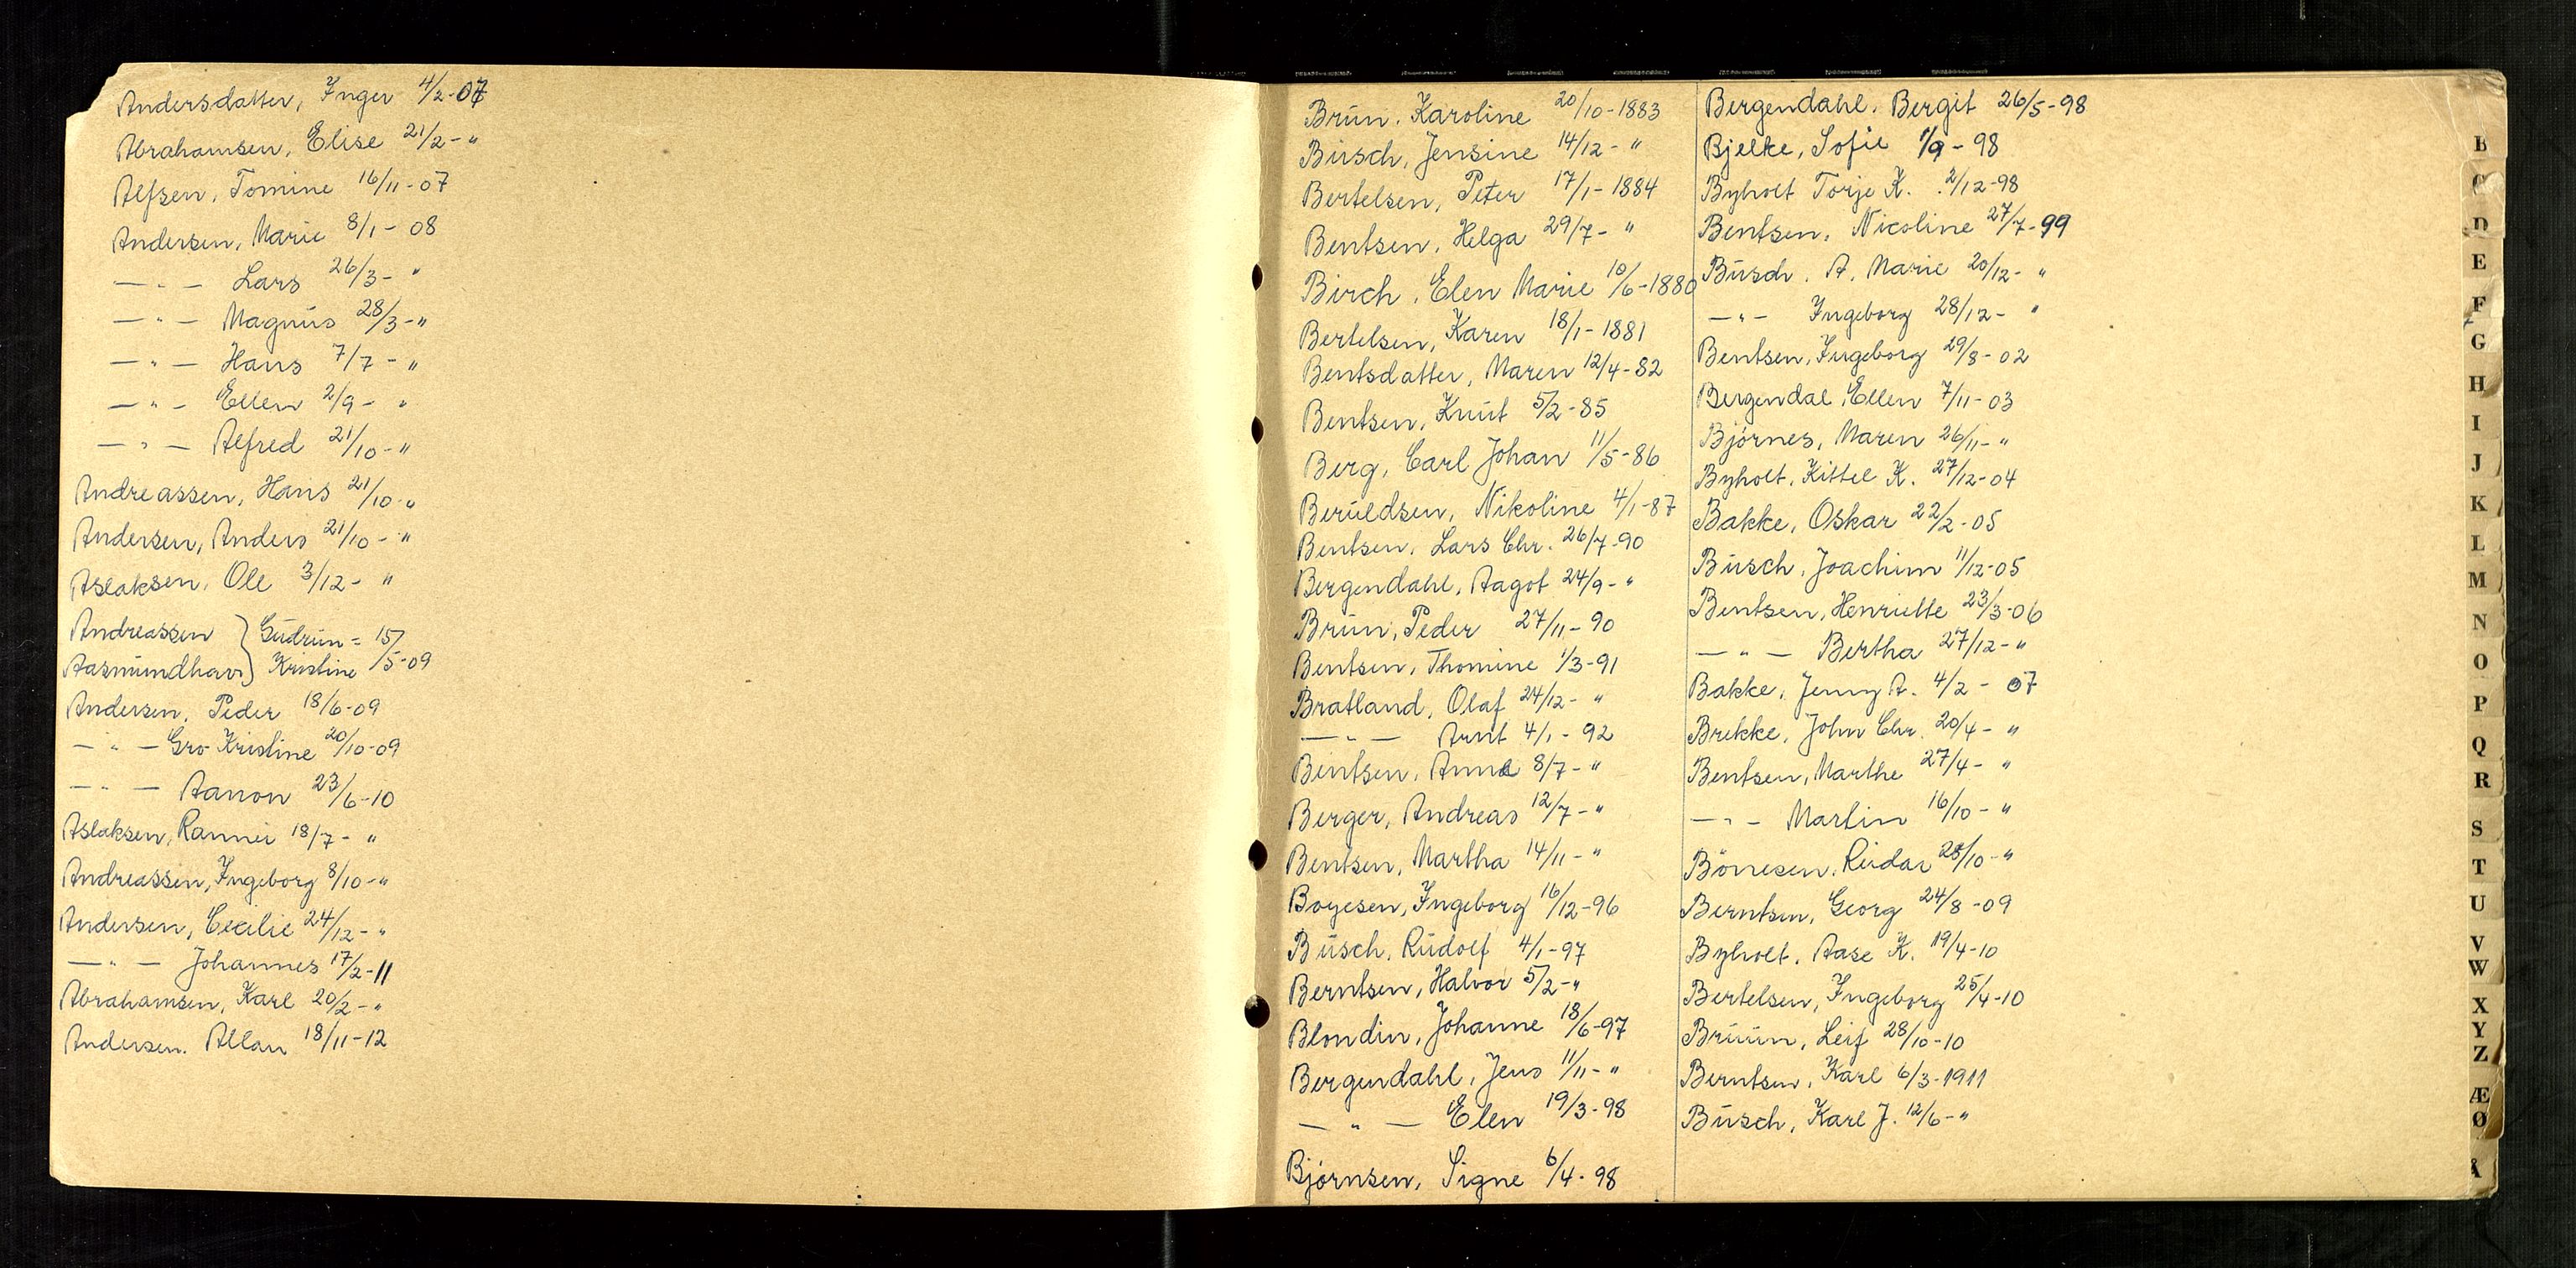 Andersdatter, Inger 4/2-07
Abrahamsen, Elise 21/2-"
Alfsen, Tomine 16/11-07
Andersen, Marie 8/1-08
—"— Lars 26/3-"
—"— Magnus 28/3-"
—"— Hans 7/7-"
—"— Ellen 2/9-"
—"— Alfred 21/10-"
Andreassen, Hans 21/10-"
Andersen, Anders 21/10-"
Aslaksen, Ole 3/12-"
Andreassen } Gudrun = 15/
Aasmundhavn } Kristine /5-09
Andersen, Peder 18/6-09
—"— Gro Kristine 20/10-09
—"— Aanon 23/6-10
Aslaksen, Rannei 18/7-"
Andreassen, Ingeborg 8/10-"
Andersen, Cecilie 24/12-"
—"— Johannes 17/2-11
Abrahamsen, Karl 20/2-"
Andersen. Allan 18/11-12
Brun. Karoline 20/10-1883
Busch, Jensine 14/12-"
Bertelsen, Peter 17/1-1884
Bentsen, Helga 29/7-"
Birch, Elen Marie 10/6-1880
Bertelsen, Karen 18/1-1881
Bentsdatter, Maren 12/4-82
Bentsen, Knut 5/2-85
Berg, Carl Johan 11/5-86
Beruldsen, Nikoline 4/1-87
Bentsen, Lars Chr. 26/7-90
Bergendahl, Aagot 24/9-"
Brun, Peder 27/11-90
Bentsen, Thomine 1/3-91
Bratland, Olaf 24/12-"
—"— Arnt 4/1-92
Bentsen, Anna 8/7-"
Berger, Andreas 12/7-"
Bentsen, Martha 14/11-"
Boyesen, Ingeborg 16/12-96
Busch, Rudolf 4/1-97
Berntsen, Halvor 5/2-"
Blondin, Johanne 18/6-97
Bergendahl, Jens 11/11-"
—"— Elen 19/3-98
Bjørnsen, Signe 6/4-98
Bergendahl. Bergit 26/5-98
Bjelke, Sofie 1/9-98
Byholt Torje K. 2/12-98
Bentsen, Nicoline 27/7-99
Busch. A. Marie 20/12-"
—"— Ingeborg 28/12-"
Bentsen, Ingeborg 29/8-02
Bergendal, Ellen 7/11-03
Bjørnes, Maren 26/11-"
Byholt, Kittel K. 27/12-04
Bakke, Oskar 22/2-05
Busch, Joachim 11/12-05
Bentsen, Henriette 23/3-06
—"— Bertha 27/12-"
Bakke, Jenny A. 4/2-07
Brekke, John Chr. 20/4-"
Bentsen, Marthe 27/4-"
—"— Martin 16/10-"
Bönesen, Reidar 28/10-"
Berntsen, Georg 24/8-09
Byholt, Aase K. 19/4-10
Bertelsen, Ingeborg 25/4-10
Bruun, Leif 28/10-10
Berntsen, Karl 6/3-1911
Busch, Karl J. 12/6-"
B
C
D
E
F
G
H
I
J
K
L
M
N
O
P
Q
R
S
T
U
V
W
X
Y
Z
Æ
Ø
Å